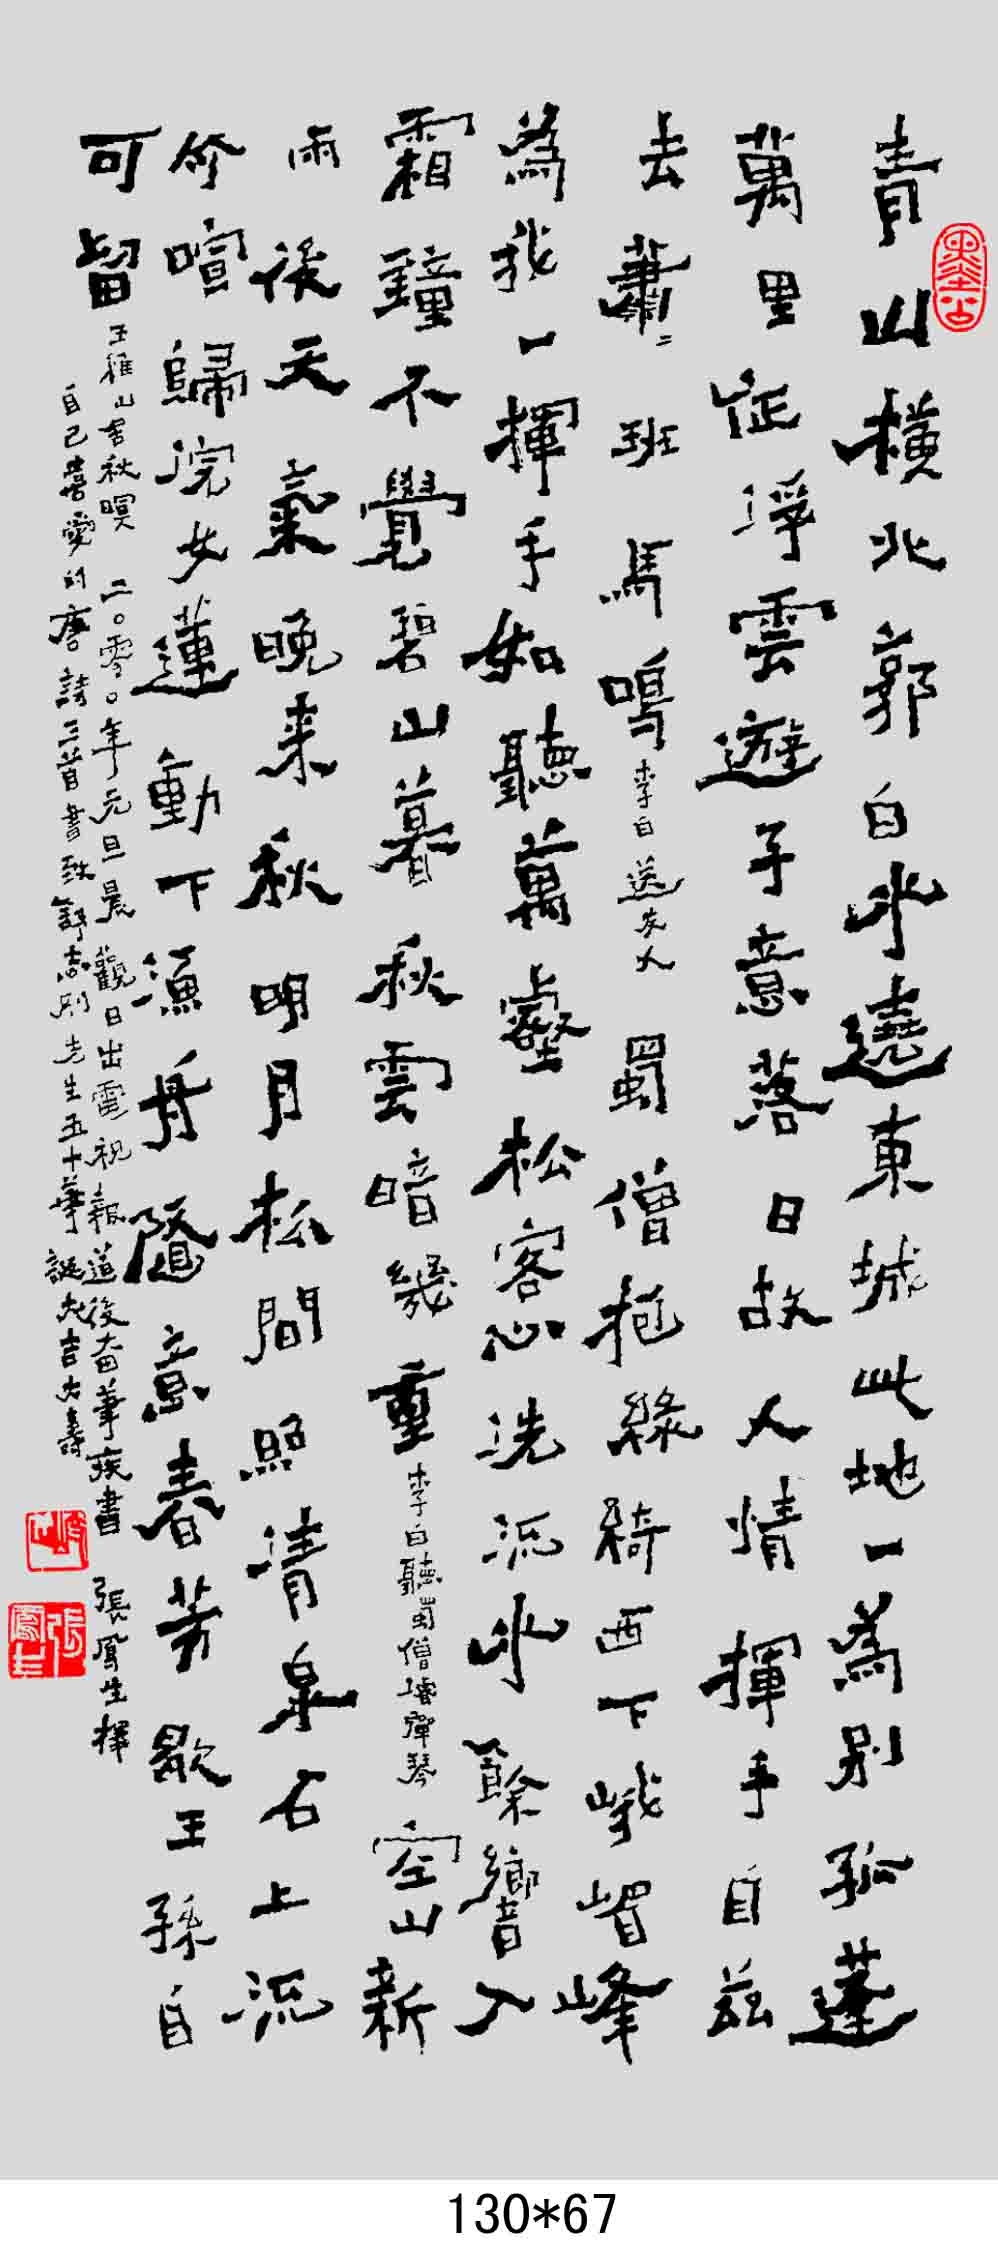 青山橫北郭白水遶東城此地一為別孤蓬
萬里征浮雲遊子意落日故人情揮手自茲
去蕭二班馬鳴李白送友人蜀僧抱綠綺西下峨嵋峰
為我一揮手如聽萬壑松客心洗流水餘響入
霜鐘不覺碧山暮秋雲暗幾重李白聽蜀僧濬彈琴空山新
雨後天氣晚来秋明月松間照清泉石上流
竹喧歸浣女蓮動下漁舟隨意春芳歇王孫自
可留王維山居秋暝二〇零〇年元旦晨觀日出電視報道後奋筆疾書張鳳生揮
自己喜愛的唐詩三首書致舒志刚先生五十華誕大吉大壽
130*67